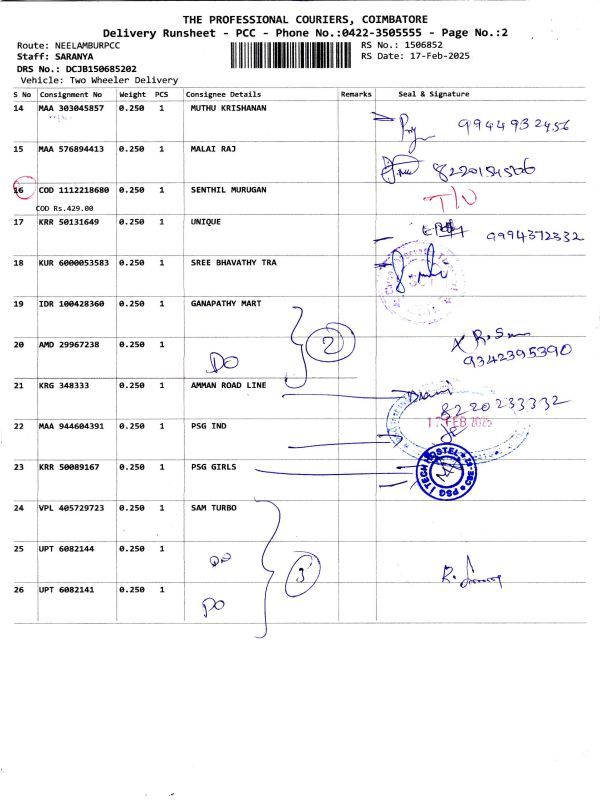 THE PROFESSIONAL COURIERS, COIMBATORE
Delivery Runsheet - PCC - Phone No.:0422-3505555 - Page No.:2
Route: NEELAMBURPCC RS No.: 1506852
Staff: SARANYA RS Date: 17-Feb-2025
DRS No.: DCJB150685202
Vehicle: Two Wheeler Delivery
S No Consignment No Weight PCS Consignee Details Remarks Seal & Signature
14 MAA 303045857 0.250 1 MUTHU KRISHANAN
9944932456
15 MAA 576894413 0.250 1 MALAI RAJ
16 COD 1112218680 0.250 1 SENTHIL MURUGAN
COD Rs.429.00
17 KRR 50131649 0.250 1 UNIQUE
9994372332
18 KUR 6000053583 0.250 1 SREE BHAVATHY TRA
19 IDR 100428360 0.250 1 GANAPATHY MART
2
20 AMD 29967238 0.250 1 DO
9342395390
21 KRG 348333 0.250 1 AMMAN ROAD LINE
8220233332
22 MAA 944604391 0.250 1 PSG IND
17 FEB 2025
23 KRR 50089167 0.250 1 PSG GIRLS
24 VPL 405729723 0.250 1 SAM TURBO
25 UPT 6082144 0.250 1 DO
3
26 UPT 6082141 0.250 1 DO